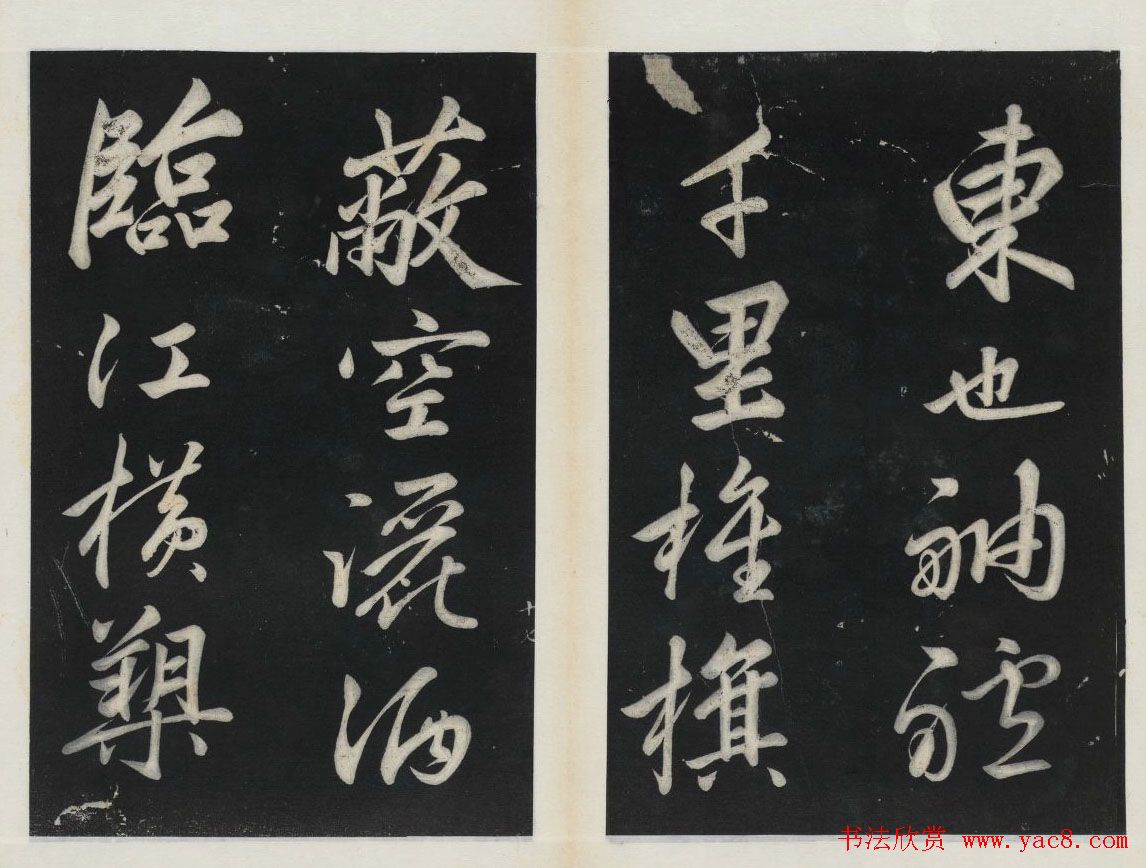 東也舳艫
千里旌旗
蔽空灑酒
臨江橫槊
书法欣赏 www.yac8.com